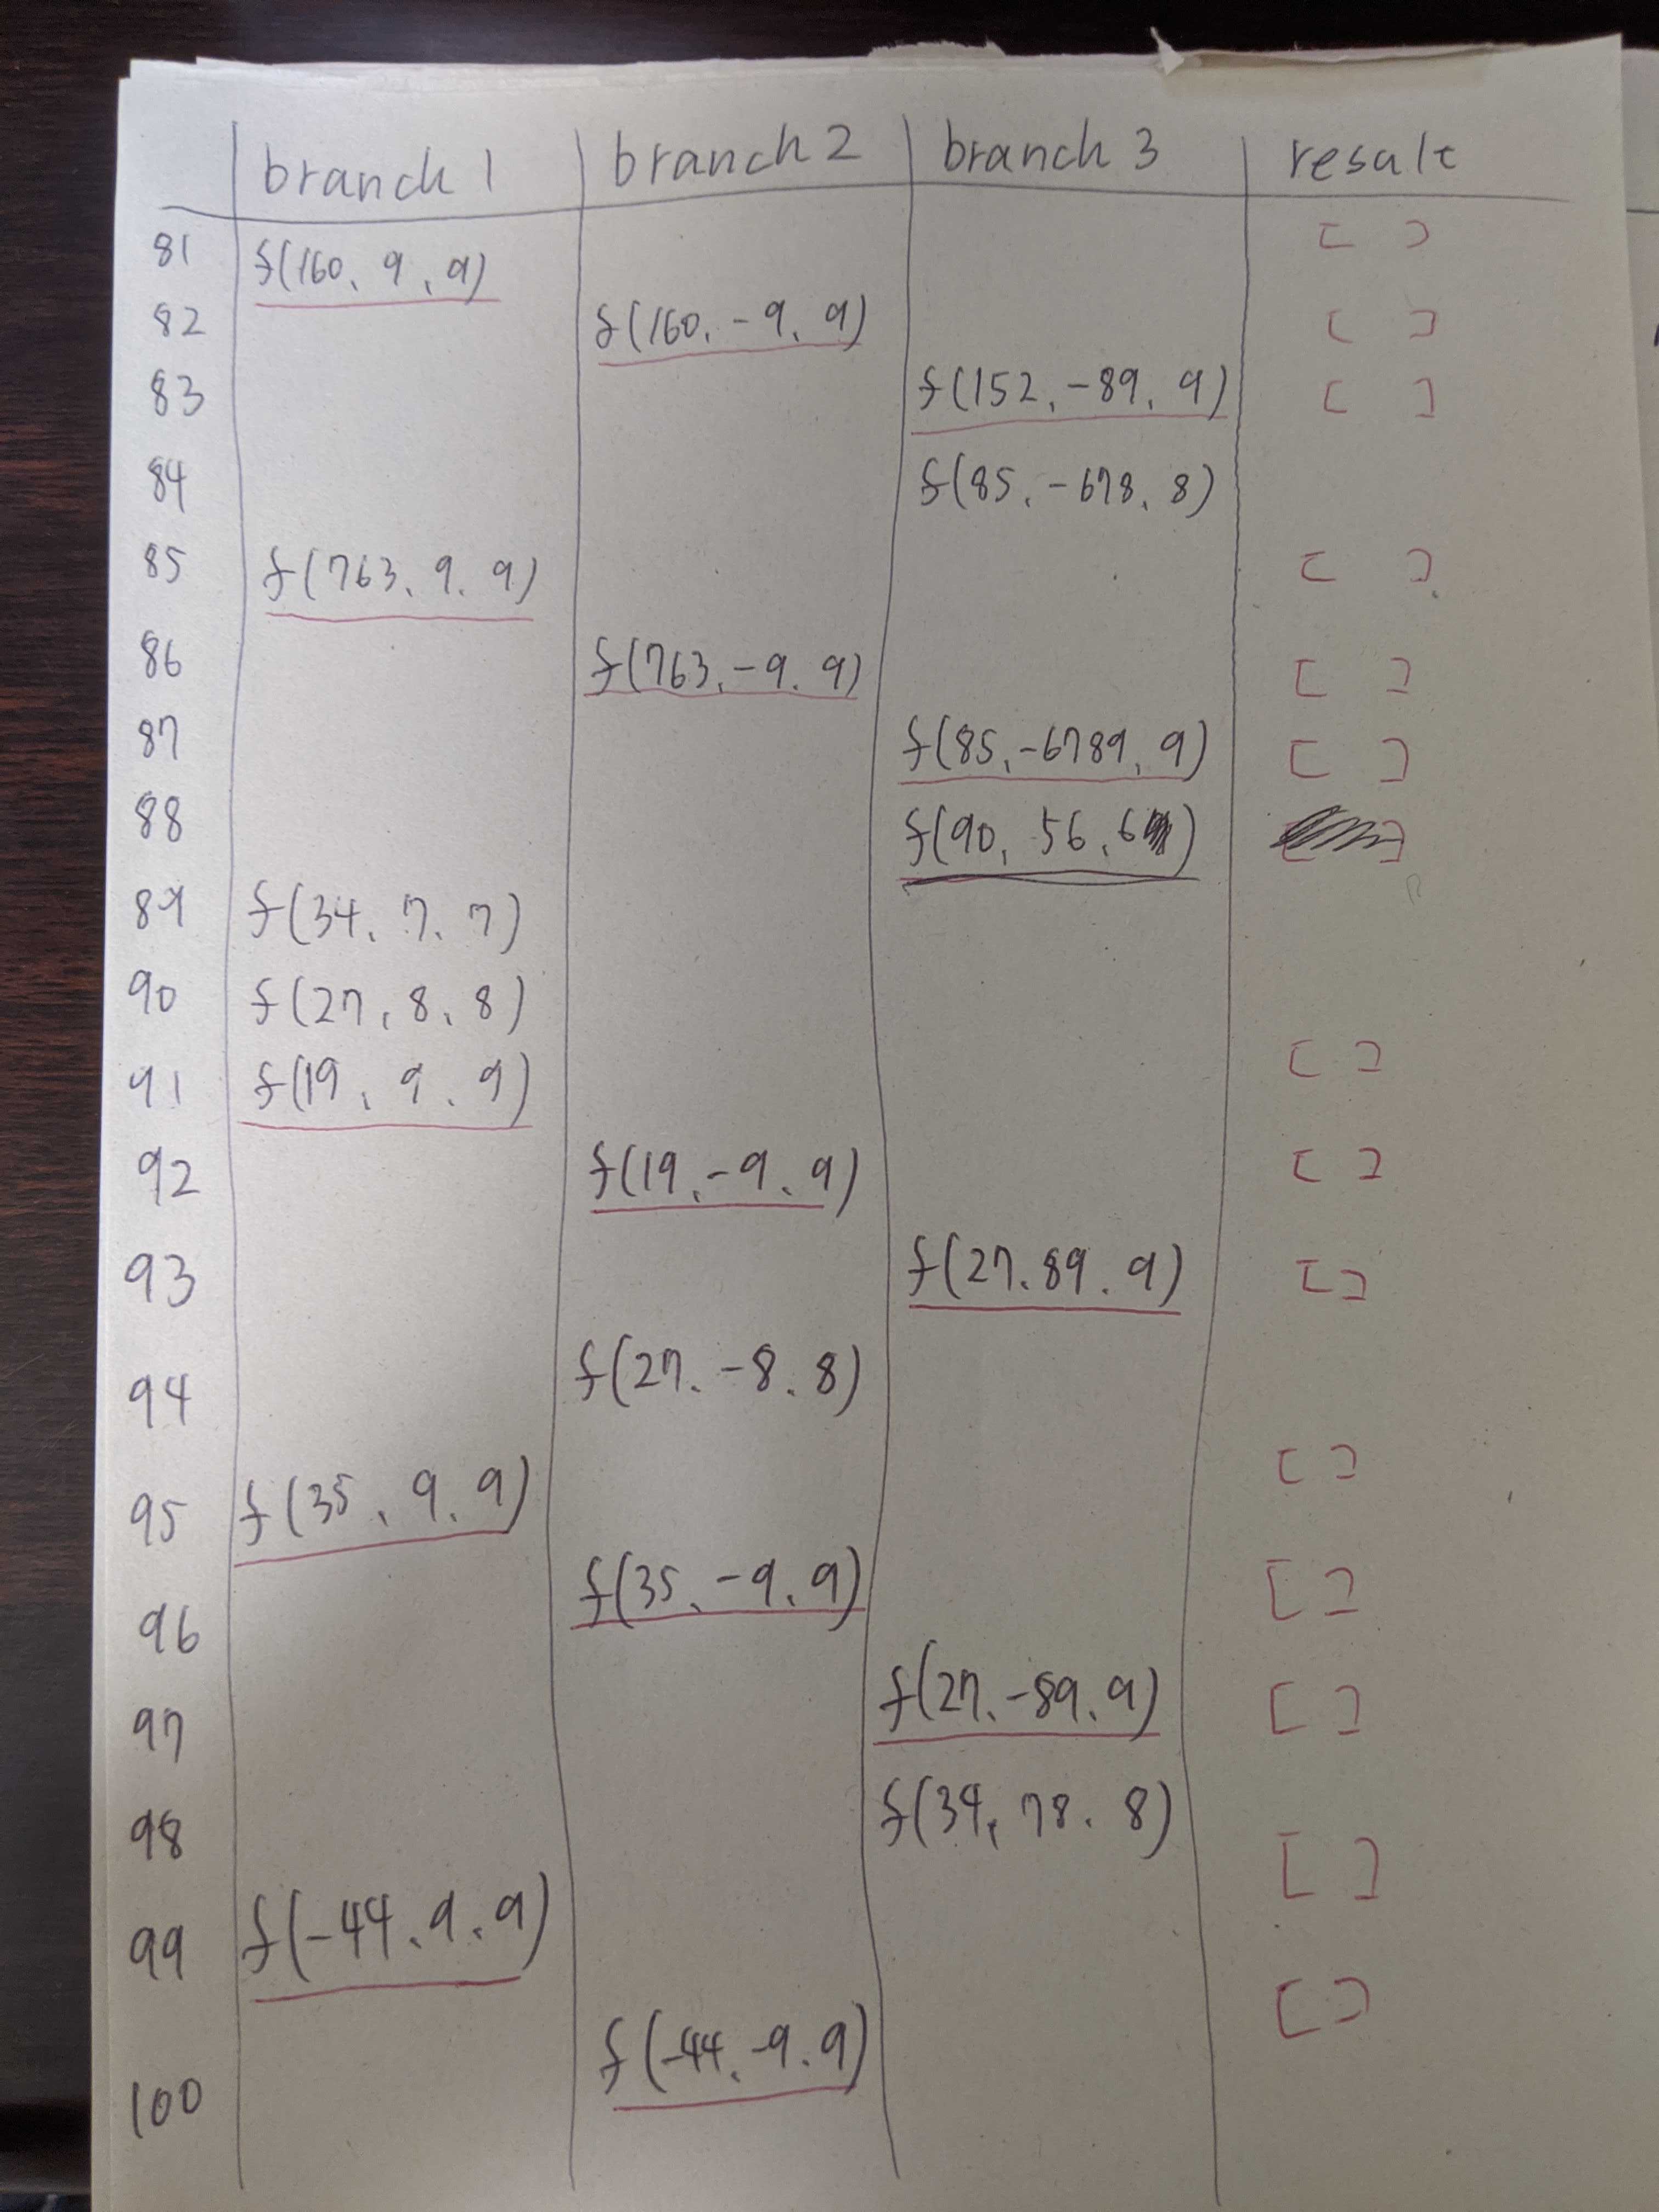 branch 1 branch 2 branch 3 resalt
81 f(160, 9, 9) [ ]
82 f(160, -9, 9) [ ]
83 f(152, -89, 9) [ ]
84 f(85, -678, 8)
85 f(763, 9, 9) [ ]
86 f(763, -9, 9) [ ]
87 f(85, -6789, 9) [ ]
88 f(90, 56, 6)
89 f(34, 7, 7)
90 f(27, 8, 8)
91 f(19, 9, 9) [ ]
92 f(19, -9, 9) [ ]
93 f(27, 89, 9) [ ]
94 f(27, -8, 8)
95 f(35, 9, 9) [ ]
96 f(35, -9, 9) [ ]
97 f(27, -89, 9) [ ]
98 f(34, 78, 8)
99 f(-44, 9, 9) [ ]
100 f(-44, -9, 9) [ ]